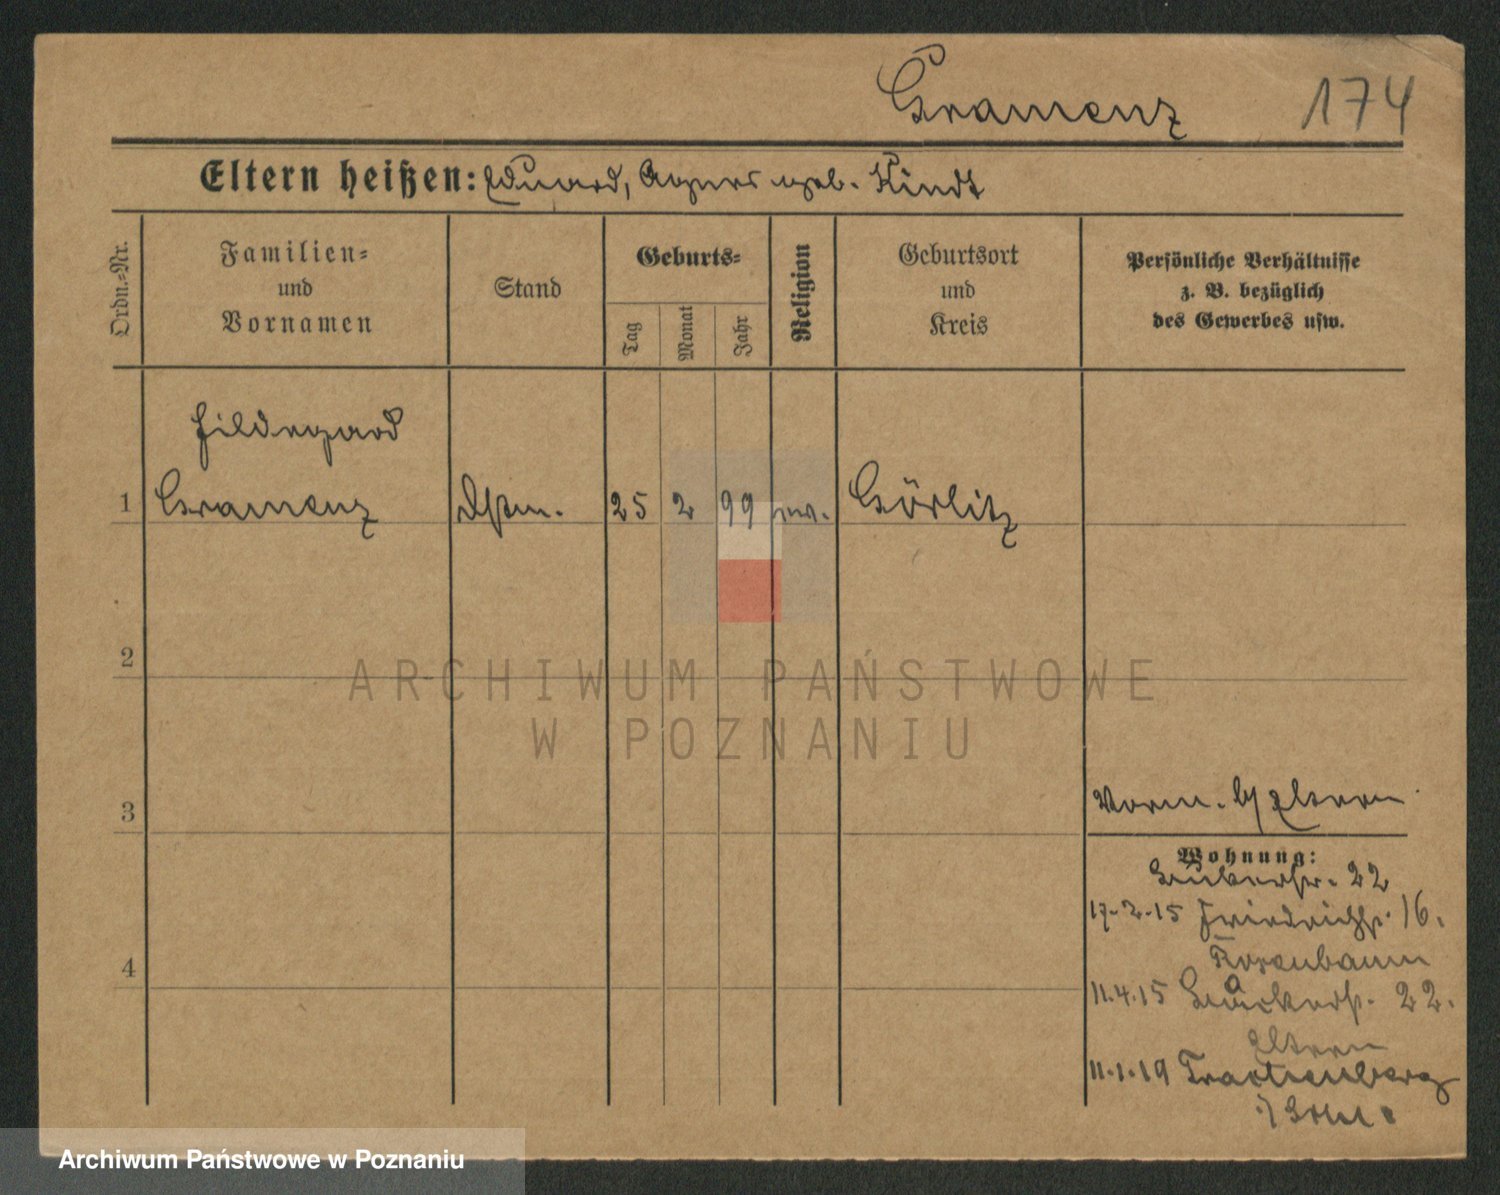 Gramenz 174
Eltern heißen: Eduard, Agnes geb. Kindt
Ordn.=Nr.
Familien=
und
Vornamen
Stand
Geburts=
Tag
Monat
Jahr
Religion
Geburtsort
und
Kreis
Persönliche Verhältnisse
z. B. bezüglich
des Gewerbes usw.
Hildegard
1 Gramenz 25 2 99 ev. Görlitz
2
3
Vorm. b/ Eltern
Wohnung:
22
17.2.15 Friedrichstr. 16.
Rosenbaum
4
11.4.15 22.
Eltern
11.1.19 Trachenberg
ARCHIWUM PAŃSTWOWE
W POZNANIU
Archiwum Państwowe w Poznaniu